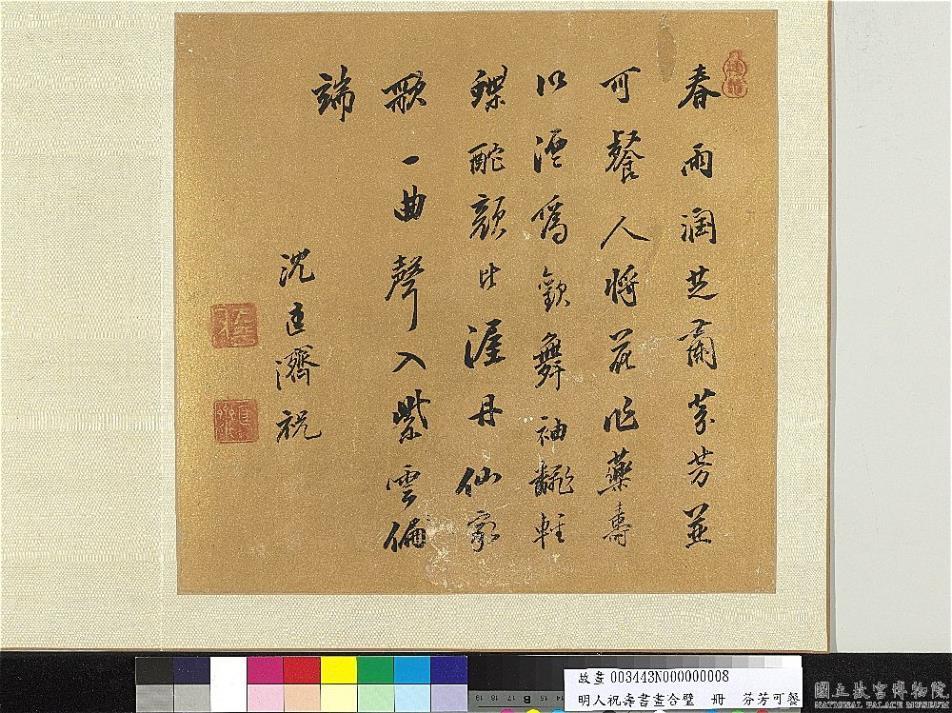 春雨潤芝蘭芬芳並
可餐人將花作藥壽
以酒為歡舞袖輕
蝶酡顏比渥丹仙家
歌一曲聲入紫雲偏
端
沈匡濟祝
故畫 003443N000000008
明人祝壽書畫合璧 冊 芬芳可餐
國立故宮博物院
NATIONAL PALACE MUSEUM